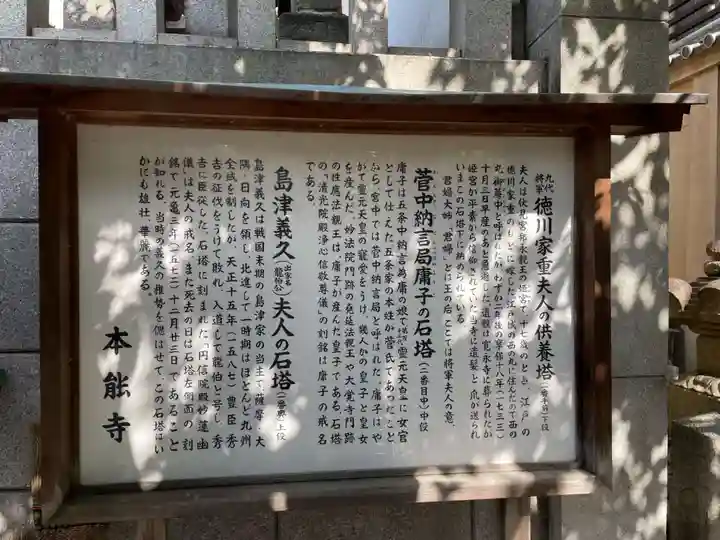 九代将軍 徳川家重夫人の供養塔(一番手前)下段
夫人は伏見宮邦永親王の姫宮で、十七歳のとき、江戸の
徳川家重のもとに嫁した。江戸城の西の丸に住んだので西の
丸御簾中と呼ばれたが、わずか二年後の享保十八年(一七三三)
十月三日早産のあと急逝した。遺骸は寛永寺に葬られたが
姫宮が平素から信仰されていた当寺に遺髪と爪が送られ
いまこの石塔下に納められている。
君嫡、大姉、君婦、どは王の后、ここでは将軍夫人の意。
菅中納言局庸子の石塔(二番目中)中位
庸子は五条中納言為庸の娘で112代霊元天皇に女官
として仕えた。五条家の本姓が菅氏であったこと
から、宮中では菅中納言局と呼ばれた。庸子はや
がて霊元天皇の寵愛をうけ、幾人かの皇子と皇女
を産んだ。妙法院門跡の堯延法親王や大覚寺門跡
の性應法親王は庸子が産んだ皇子である。石塔
の「清光院殿浄心信敬尊儀」の刻銘は庸子の戒名
である。
島津義久(出家名 龍伯公)夫人の石塔(一番奥)上段
島津義久は戦国末期の島津家の当主で、薩摩、大
隅、日向を領し、北進して一時期はほとんど九州
全域を制したが、天正十五年(一五八七)豊臣秀
吉の征伐をうけて敗れ、入道して龍伯と号し、秀
吉に臣従した。石塔に刻まれた「円信院殿妙蓮幽
儀」は夫人の戒名、また死去の日は石塔左側面の刻
銘で「元亀三年(一五七二)十二月廿三日」であること
が知れる。当時の義久の権勢を偲ばせて、この石塔はい
かにも雄壮、華麗である。
本能寺